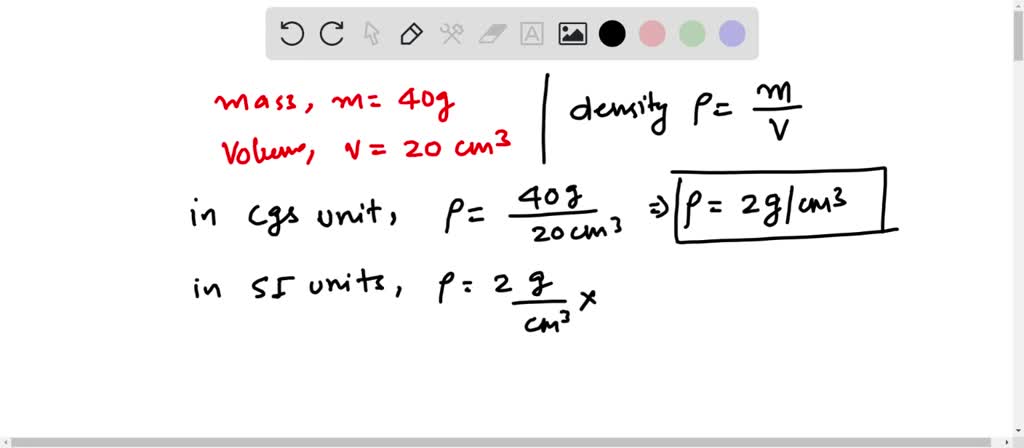 mass, m = 40g
Volume, v = 20 cm³
density ρ = m/V
in cgs unit, ρ = 40g/20cm³ ⇒ ρ = 2g/cm³
in SI units, ρ = 2 g/cm³ ×